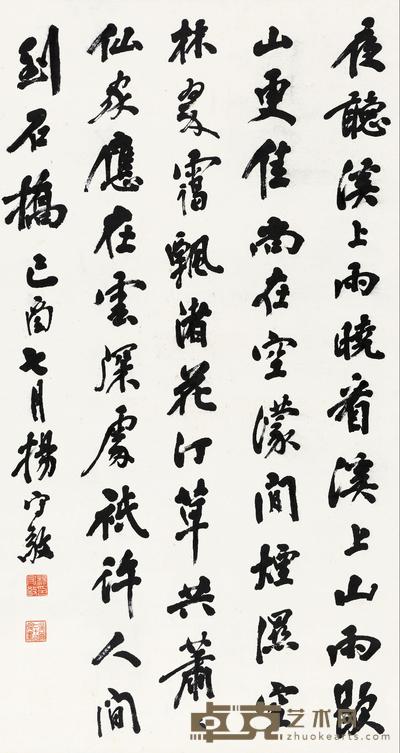 夜聽溪上雨曉看溪上山雨歇
山更佳尚在空濛間煙濕空
林翠靄飄渚花汀草共蕭々
仙家應在雲深處祗許人間
到石橋己酉七月楊守敬
卓克艺术网
zhuokearts.com